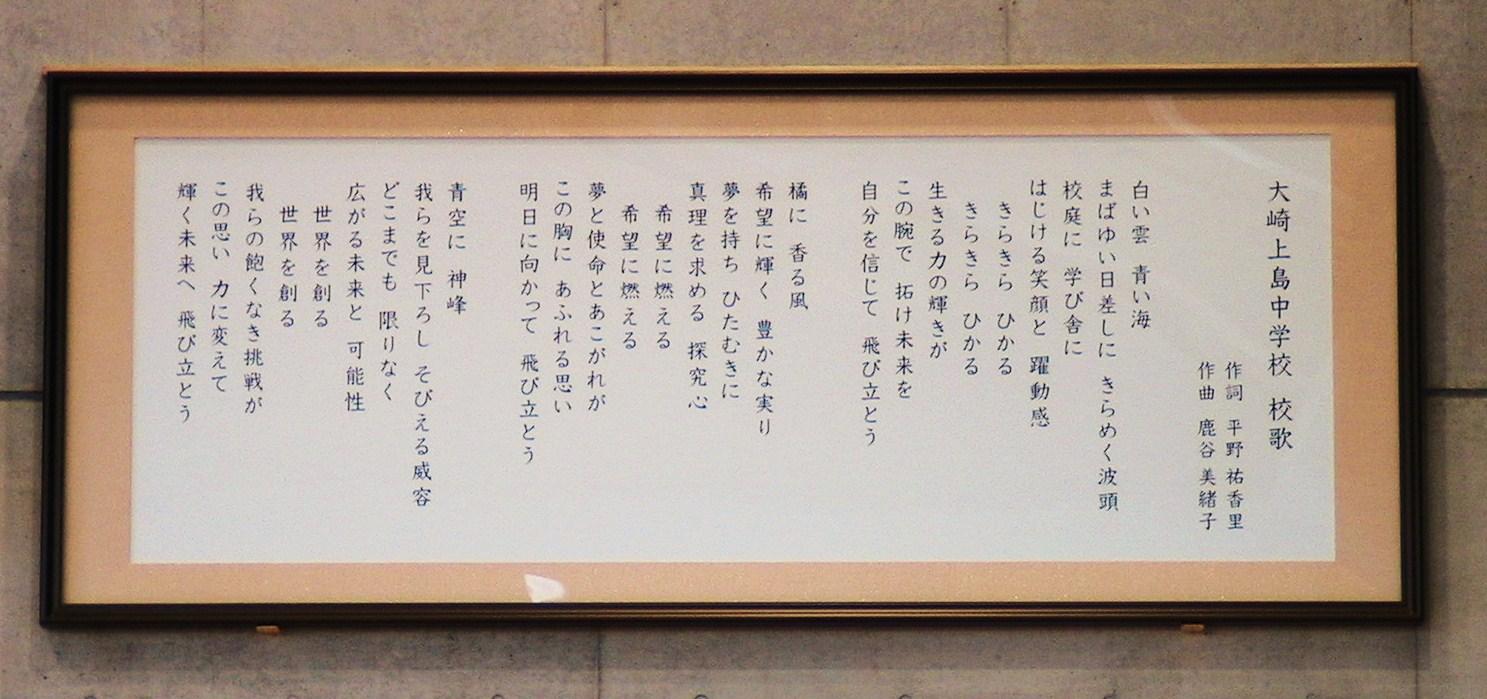 大崎上島中学校 校歌
作詞 平野 祐香里
作曲 鹿谷 美緒子
白い雲 青い海
まばゆい日差しに きらめく波頭
校庭に 学び舎に
はじける笑顔と 躍動感
きらきら ひかる
きらきら ひかる
生きる力の輝きが
この腕で 拓け未来を
自分を信じて 飛び立とう
橘に 香る風
希望に輝く 豊かな実り
夢を持ち ひたむきに
真理を求める 探究心
希望に燃える
希望に燃える
夢と使命とあこがれが
この胸に あふれる思い
明日に向かって 飛び立とう
青空に 神峰
我らを見下ろし そびえる威容
どこまでも 限りなく
広がる未来と 可能性
世界を創る
世界を創る
我らの飽くなき挑戦が
この思い 力に変えて
輝く未来へ 飛び立とう